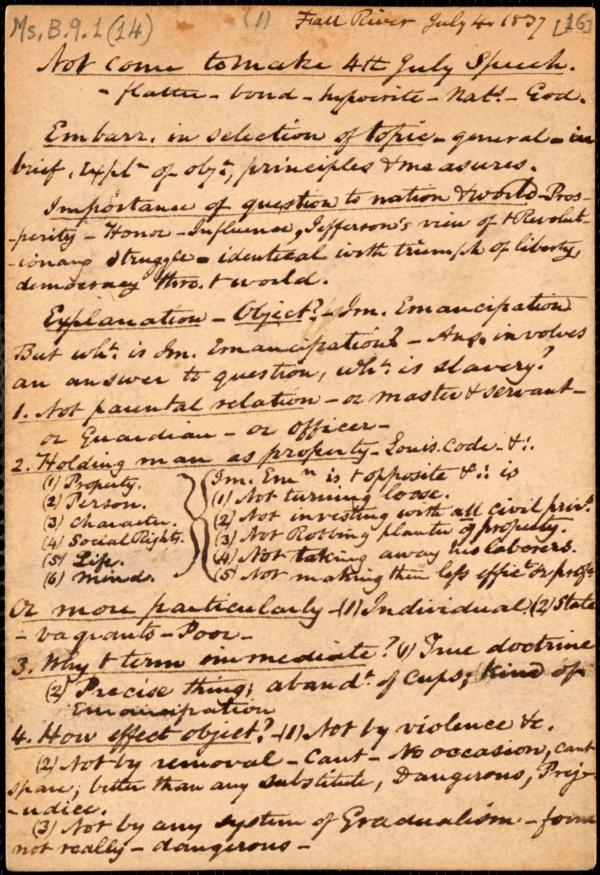 Ms. B. 9. 1 (14) (1) Fall River July 4. 1837 [16]
Not come to make 4th July Speech.
- flatter - bond - hypocrite - Nat. - God.
Embarr. in selection of topic - general - in
brief, Expln of obj., principles & measures.
Importance of question to nation & world - Pros-
-perity - Honor - Influence, Jefferson's view of t Revolut-
-ionary struggle - identical with triumph of liberty,
democracy thro. t world.
Explanation - Object? - Im. Emancipation
But wht. is Im. Emancipation? - Ans. involves
an answer to question, wht. is slavery?
1. Not parental relation - or master & servant -
or Guardian - or officer -
2. Holding man as property - Louis. Code - &c.
(1) Property. Im. Emn is t opposite &c. is
(2) Person. (1) Not turning loose.
(3) Character. (2) Not investing with all civil priv.
(4) Social Rights. (3) Not Robbing planter of property.
(5) Life. (4) Not taking away his laborers.
(6) mind. (5) Not making them less effict. or
Or more particularly - (1) Individual. (2) State
- vagrants - Poor -
3. Why t term immediate? (1) True doctrine
(2) Precise thing; aband. of Kind of
Emancipation
4. How effect object? - (1) Not by violence &c.
(2) Not by removal - Cant - No occasion, cant
spare; better than any substitute, Dangerous, Prej-
-udice.
(3) Not by any system of Gradualism - form
not really - dangerous -